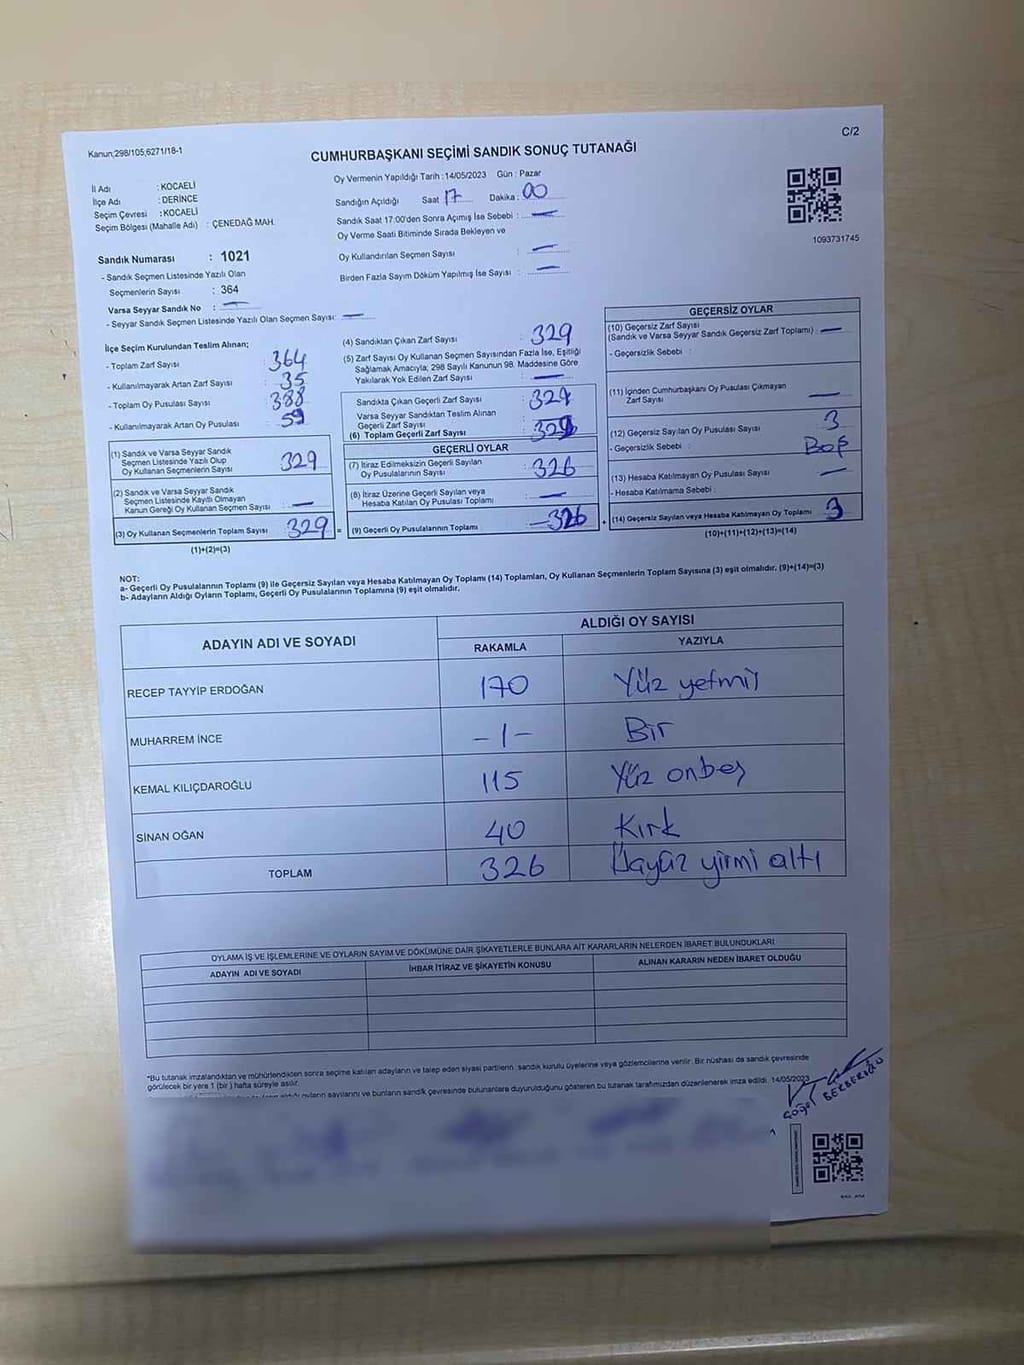 Kanun;298/105,6271/18-1
C/2
CUMHURBAŞKANI SEÇİMİ SANDIK SONUÇ TUTANAĞI
İl Adı : KOCAELİ
İlçe Adı : DERİNCE
Seçim Çevresi : KOCAELİ
Seçim Bölgesi (Mahalle Adı) : ÇENEDAĞ MAH.
Sandık Numarası : 1021
- Sandık Seçmen Listesinde Yazılı Olan
Seçmenlerin Sayısı : 364
Varsa Seyyar Sandık No : —
- Seyyar Sandık Seçmen Listesinde Yazılı Olan Seçmen Sayısı: —
Oy Vermenin Yapıldığı Tarih : 14/05/2023 Gün : Pazar
Sandığın Açıldığı Saat 17 Dakika : 00
Sandık Saat 17:00'den Sonra Açımış İse Sebebi : —
Oy Verme Saati Bitiminde Sırada Bekleyen ve
Oy Kullandırılan Seçmen Sayısı : —
Birden Fazla Sayım Döküm Yapılmış İse Sayısı : —
1093731745
İlçe Seçim Kurulundan Teslim Alınan;
- Toplam Zarf Sayısı : 364
- Kullanılmayarak Artan Zarf Sayısı : 35
- Toplam Oy Pusulası Sayısı : 388
- Kullanılmayarak Artan Oy Pusulası : 59
(1) Sandık ve Varsa Seyyar Sandık
Seçmen Listesinde Yazılı Olup
Oy Kullanan Seçmenlerin Sayısı 329
(2) Sandık ve Varsa Seyyar Sandık
Seçmen Listesinde Kayıtlı Olmayan
Kanun Gereği Oy Kullanan Seçmen Sayısı : —
(3) Oy Kullanan Seçmenlerin Toplam Sayısı 329 =
(1)+(2)=(3)
(4) Sandıktan Çıkan Zarf Sayısı : 329
(5) Zarf Sayısı Oy Kullanan Seçmen Sayısından Fazla İse, Eşitliği
Sağlamak Amacıyla; 298 Sayılı Kanunun 98. Maddesine Göre
Yakılarak Yok Edilen Zarf Sayısı : —
Sandıkta Çıkan Geçerli Zarf Sayısı : 329
Varsa Seyyar Sandıktan Teslim Alınan
Geçerli Zarf Sayısı : —
(6) Toplam Geçerli Zarf Sayısı : 329
GEÇERLİ OYLAR
(7) İtiraz Edilmeksizin Geçerli Sayılan
Oy Pusulalarının Sayısı : 326
(8) İtiraz Üzerine Geçerli Sayılan veya
Hesaba Katılan Oy Pusulası Toplamı : —
(9) Geçerli Oy Pusulalarının Toplamı 326 +
GEÇERSİZ OYLAR
(10) Geçersiz Zarf Sayısı
(Sandık ve Varsa Seyyar Sandık Geçersiz Zarf Toplamı) : —
- Geçersizlik Sebebi :
(11) İçinden Cumhurbaşkanı Oy Pusulası Çıkmayan
Zarf Sayısı : —
(12) Geçersiz Sayılan Oy Pusulası Sayısı : 3
- Geçersizlik Sebebi : Boş
(13) Hesaba Katılmayan Oy Pusulası Sayısı : —
- Hesaba Katılmama Sebebi :
(14) Geçersiz Sayılan veya Hesaba Katılmayan Oy Toplamı 3
(10)+(11)+(12)+(13)=(14)
NOT:
a- Geçerli Oy Pusulalarının Toplamı (9) ile Geçersiz Sayılan veya Hesaba Katılmayan Oy Toplamı (14) Toplamları, Oy Kullanan Seçmenlerin Toplam Sayısına (3) eşit olmalıdır. (9)+(14)=(3)
b- Adayların Aldığı Oyların Toplamı, Geçerli Oy Pusulalarının Toplamına (9) eşit olmalıdır.
ADAYIN ADI VE SOYADI
ALDIĞI OY SAYISI
RAKAMLA YAZIYLA
RECEP TAYYİP ERDOĞAN 170 Yüz yetmiş
MUHARREM İNCE -1- Bir
KEMAL KILIÇDAROĞLU 115 Yüz onbeş
SİNAN OĞAN 40 Kırk
TOPLAM 326 Üçyüz yirmi altı
OYLAMA İŞ VE İŞLEMLERİNE VE OYLARIN SAYIM VE DÖKÜMÜNE DAİR ŞİKAYETLERLE BUNLARA AİT KARARLARIN NELERDEN İBARET BULUNDUKLARI
ADAYIN ADI VE SOYADI İHBAR İTİRAZ VE ŞİKAYETİN KONUSU ALINAN KARARIN NEDEN İBARET OLDUĞU
*Bu tutanak imzalandıktan ve mühürlendikten sonra seçime katılan adayların ve talep eden siyasi partilerin, sandık kurulu üyelerine veya gözlemcilerine verilir. Bir nüshası da sandık çevresinde
görülecek bir yere 1 (bir) hafta süreyle asılır.
aldığı oyların sayılarını ve bunların sandık çevresinde bulunanlara duyurulduğunu gösteren bu tutanak tarafımızdan düzenlenerek imza edildi. 14/05/2023
BERBEROĞLU